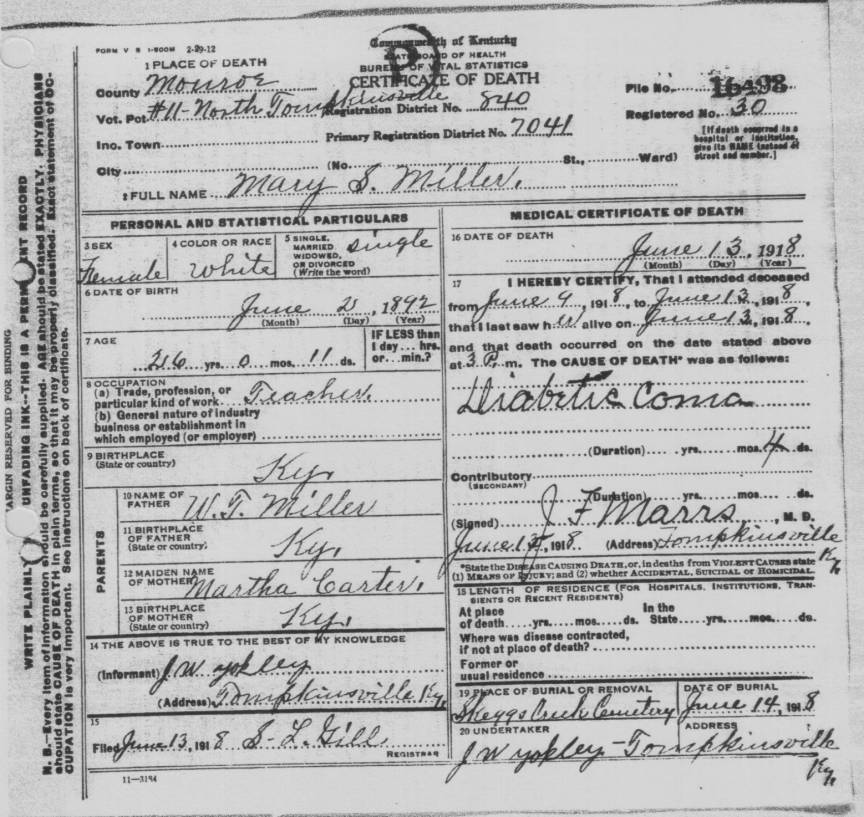 FORM V S 1-500M 2-29-12
Commonwealth of Kentucky
STATE BOARD OF HEALTH
BUREAU OF VITAL STATISTICS
CERTIFICATE OF DEATH
1 PLACE OF DEATH
County Monroe
Vot. Pct #11-North Tompkinsville
Registration District No. 840
Inc. Town
Primary Registration District No. 7041
City (No. St., Ward)
File No. 16498
Registered No. 30
[If death occurred in a hospital or institution, give its NAME instead of street and number.]
2 FULL NAME Mary S. Miller.
PERSONAL AND STATISTICAL PARTICULARS
3 SEX
Female
4 COLOR OR RACE
White
5 SINGLE, MARRIED WIDOWED, OR DIVORCED (Write the word)
single
6 DATE OF BIRTH
June 2, 1892
(Month) (Day) (Year)
7 AGE
26 yrs. 0 mos. 11 ds.
IF LESS than 1 day... hrs. or... min.?
8 OCCUPATION
(a) Trade, profession, or
particular kind of work Teacher.
(b) General nature of industry
business or establishment in
which employed (or employer)
9 BIRTHPLACE
(State or country)
Ky.
PARENTS
10 NAME OF FATHER
W. T. Miller
11 BIRTHPLACE OF FATHER (State or country)
Ky.
12 MAIDEN NAME OF MOTHER
Martha Carter.
13 BIRTHPLACE OF MOTHER (State or country)
Ky.
14 THE ABOVE IS TRUE TO THE BEST OF MY KNOWLEDGE
(Informant) J. W. yokley
(Address) Tompkinsville Ky.
15
Filed June 13, 1918 S. L. Gill
REGISTRAR
11-3194
MEDICAL CERTIFICATE OF DEATH
16 DATE OF DEATH
June 13, 1918
(Month) (Day) (Year)
17 I HEREBY CERTIFY, That I attended deceased
from June 9, 1918, to June 13, 1918,
that I last saw her alive on June 13, 1918,
and that death occurred on the date stated above
at 3 P. m. The CAUSE OF DEATH* was as follows:
Diabetic Coma
(Duration) yrs. mos. 4 ds.
Contributory
(SECONDARY)
(Duration) yrs. mos. ds.
(Signed) J F Marrs, M. D.
June, 1918 (Address) Tompkinsville Ky.
*State the DISEASE CAUSING DEATH, or, in deaths from VIOLENT CAUSES state
(1) MEANS OF INJURY; and (2) whether ACCIDENTAL, SUICIDAL or HOMICIDAL.
18 LENGTH OF RESIDENCE (FOR HOSPITALS, INSTITUTIONS, TRANSIENTS OR RECENT RESIDENTS)
At place of death yrs. mos. ds. In the State yrs. mos. ds.
Where was disease contracted,
if not at place of death?
Former or
usual residence
19 PLACE OF BURIAL OR REMOVAL
Skeggs Creek Cemetery
DATE OF BURIAL
June 14, 1918
20 UNDERTAKER
J W yokley
ADDRESS
Tompkinsville Ky.
MARGIN RESERVED FOR BINDING
WRITE PLAINLY UNFADING INK--THIS IS A PERMANENT RECORD
N. B.--Every item of information should be carefully supplied. AGE should be stated EXACTLY. PHYSICIANS
should state CAUSE OF DEATH in plain terms, so that it may be properly classified. Exact statement of OC-
CUPATION is very important. See instructions on back of certificate.